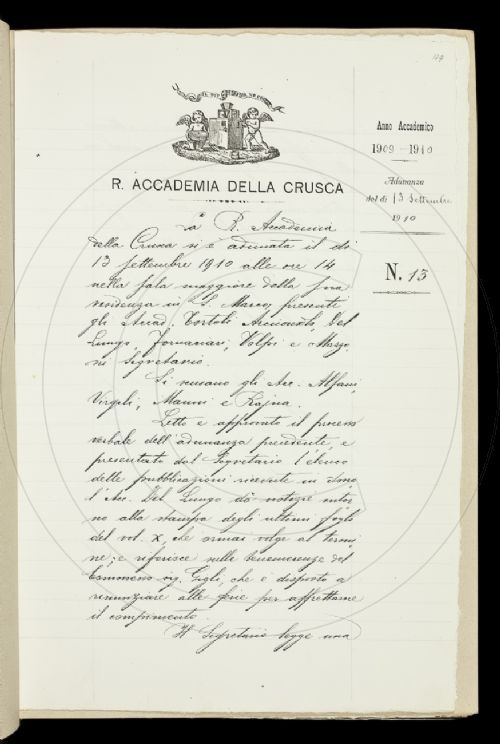 Anno Accademico
1909-1910
Adunanza
del dì 13 Settembre
1910
N. 13
R. ACCADEMIA DELLA CRUSCA
La R. Accademia
della Crusca si è adunata il dì
13 Settembre 1910 alle ore 14
nella sala maggiore della sua
residenza in S. Marco, presenti
gli Accad. Tortoli Arciconsolo, Del
Lungo, Fornaciari, Volpi e Mazzo
ni Segretario.
Si scusano gli Acc. Alfani,
Virgili, Mauri e Rajna.
Letto e approvato il processo
verbale dell'adunanza precedente, e
presentato dal Segretario l'elenco
delle pubblicazioni ricevute in dono
l'Acc. Del Lungo dà notizie intor
no alla stampa degli ultimi fogli
del vol. X, che ormai volge al termi
ne; e riferisce sulle benemerenze del
Commesso sig. Gigli, che è disposto a
rinunziare alle ferie per affrettarne
il compimento.
Il Segretario legge una